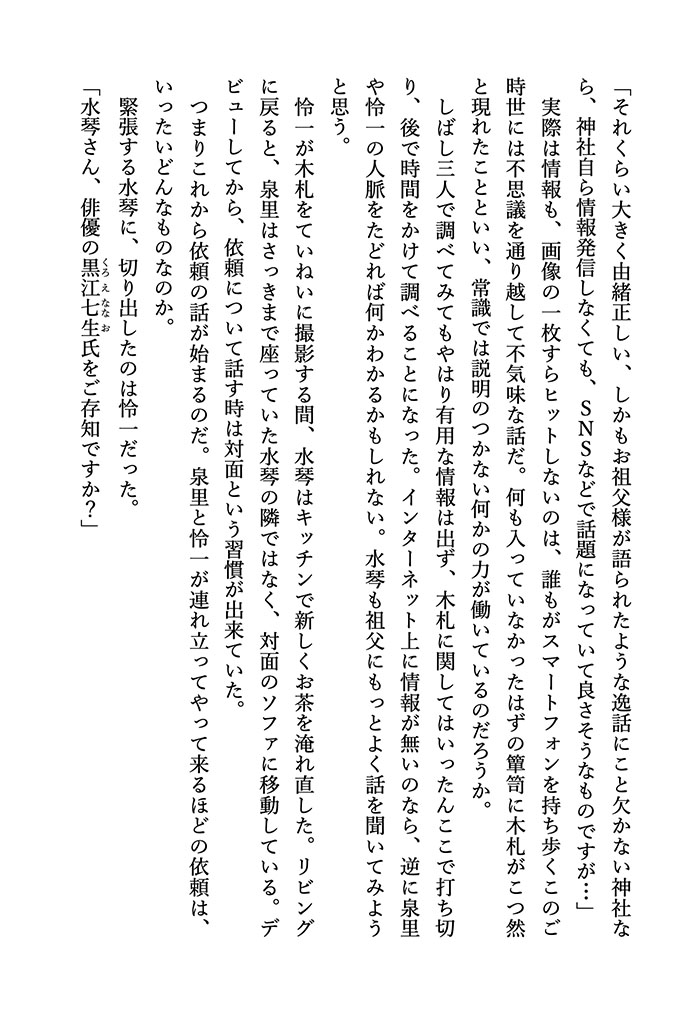 「それくらい大きく由緒正しい、しかもお祖父様が語られたような逸話にこと欠かない神社な
ら、神社自ら情報発信しなくても、SNSなどで話題になっていて良さそうなものですが…」
　実際は情報も、画像の一枚すらヒットしないのは、誰もがスマートフォンを持ち歩くこのご
時世には不思議を通り越して不気味な話だ。何も入っていなかったはずの簞笥に木札がこつ然
と現れたことといい、常識では説明のつかない何かの力が働いているのだろうか。
　しばし三人で調べてみてもやはり有用な情報は出ず、木札に関してはいったんここで打ち切
り、後で時間をかけて調べることになった。インターネット上に情報が無いのなら、逆に泉里
や怜一の人脈をたどれば何かわかるかもしれない。水琴も祖父にもっとよく話を聞いてみよう
と思う。
　怜一が木札をていねいに撮影する間、水琴はキッチンで新しくお茶を淹れ直した。リビング
に戻ると、泉里はさっきまで座っていた水琴の隣ではなく、対面のソファに移動している。デ
ビューしてから、依頼について話す時は対面という習慣が出来ていた。
　つまりこれから依頼の話が始まるのだ。泉里と怜一が連れ立ってやって来るほどの依頼は、
いったいどんなものなのか。
　緊張する水琴に、切り出したのは怜一だった。
「水琴さん、俳優の黒江七生氏をご存知ですか？」
くろえななお